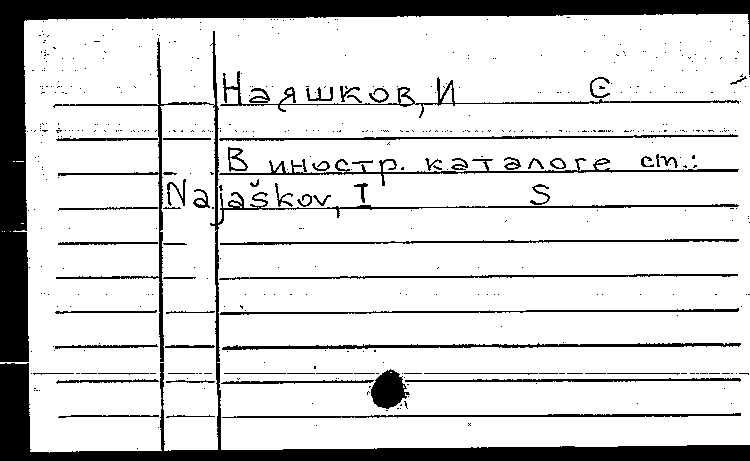 Наяшков, И С
В иностр. каталоге ст.:
Najaškov, I S